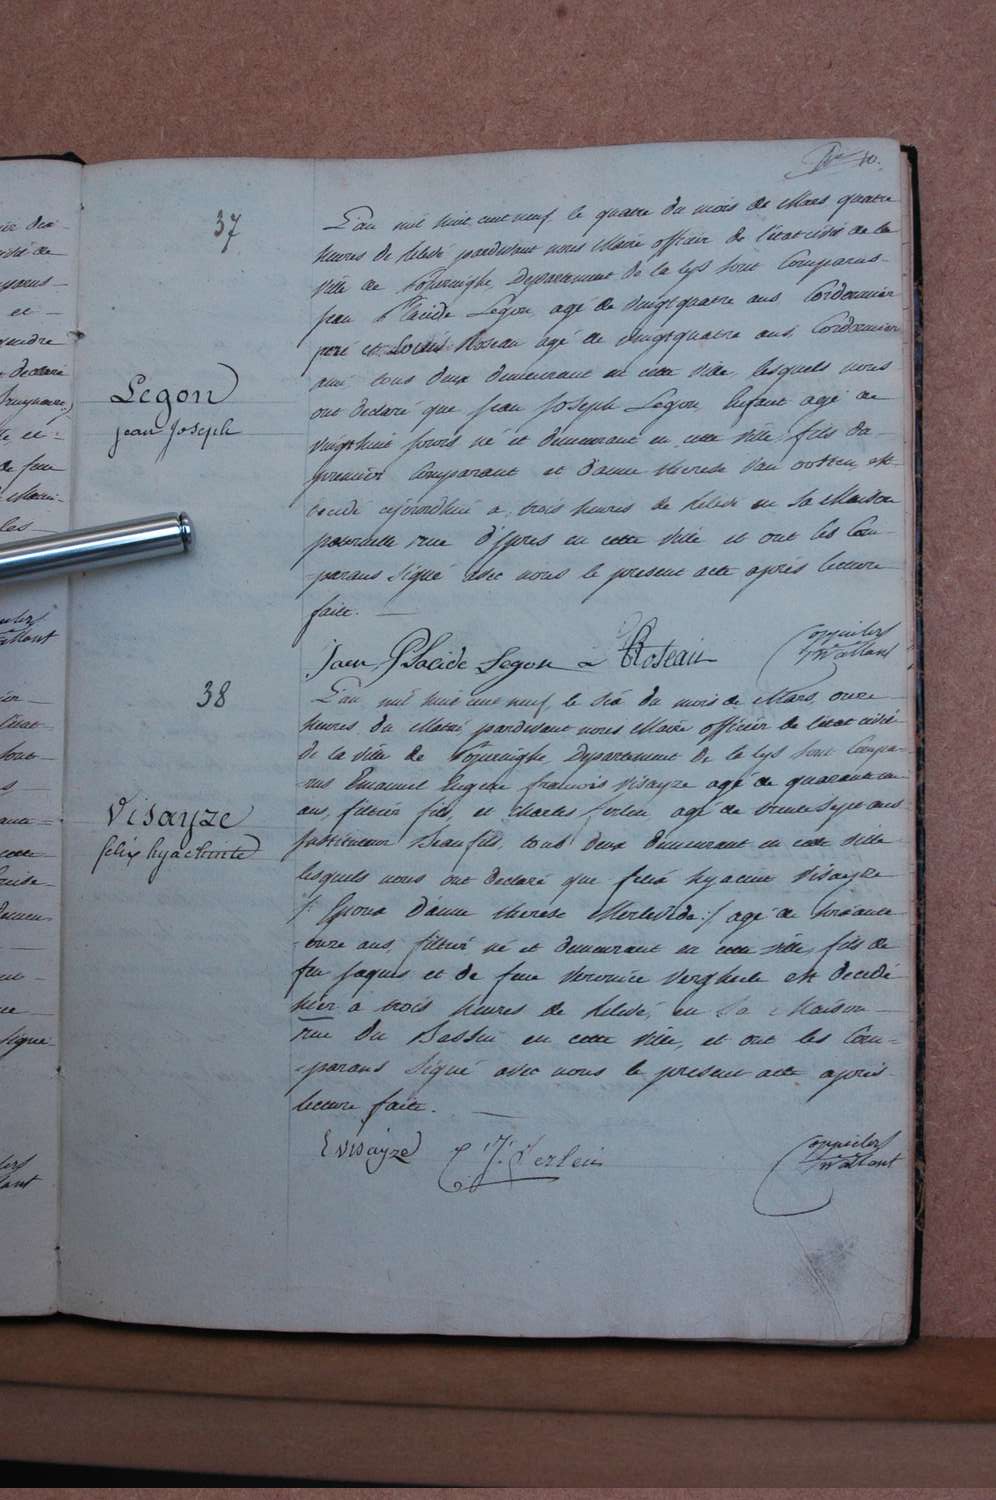 10.
37
L'an mil huit cent neuf le quatre du mois de Mars quatre
heures de Relevé pardevant nous Maire officier de l'état civil de la
ville de Poperinghe, Departement de la Lys sont Comparus
jean Placide Legon, agé de vingt quatre ans, Cordonnier
peré et Roseau agé de vingt quatre ans, Cordonnier
ami tous deux demeurant en cette ville, lesquels nous
Legon
jean Joseph
ont declaré que jean Joseph Legon, Enfant agé de
vingt huit jours né et demeurant en cette ville, fils du
premier Comparant et d'anne therese Van oosten, est
decedé aujourdhui a trois heures de Relevé en Sa Maison
rue d'Ypres en cette ville et ont les Com-
parans Signé avec nous le present acte après lecture
faite. —
jean Placide Legon Roseau
38
L'an mil huit cent neuf le Six du mois de Mars, onze
heures du Matin pardevant nous Maire officier de l'état civil
de la ville de Poperinghe, Departement de la Lys sont Compa-
rus Emanuel Eugene francois Visayze agé de quarant un
ans, filtier fils, et Charles agé de trente sept ans
Visayze
felix hyachinte
Instituteur Beaufils, tous deux demeurant en cette ville
lesquels nous ont declaré que felix hyacint Visayze
/: Epoux d'anne therese Merlevede :/ agé de soixante
onze ans, filtier né et demeurant en cette ville, fils de
feu Jaques et de feue Veronice est decedé
hier à trois heures de Relevé, en Sa Maison
rue du Bassin en cette ville, et ont les Com-
parans Signé avec nous le present acte après
lecture faite. —
E Visayze